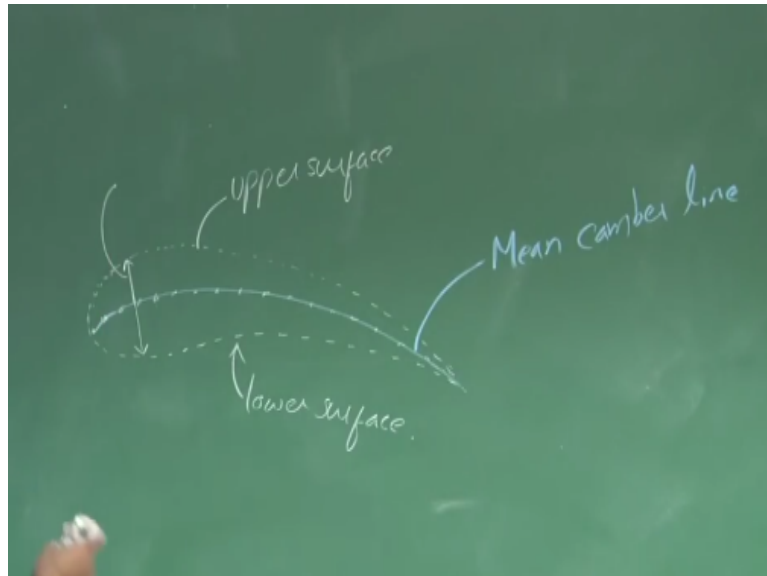 upper surface
Mean camber line
lower surface.